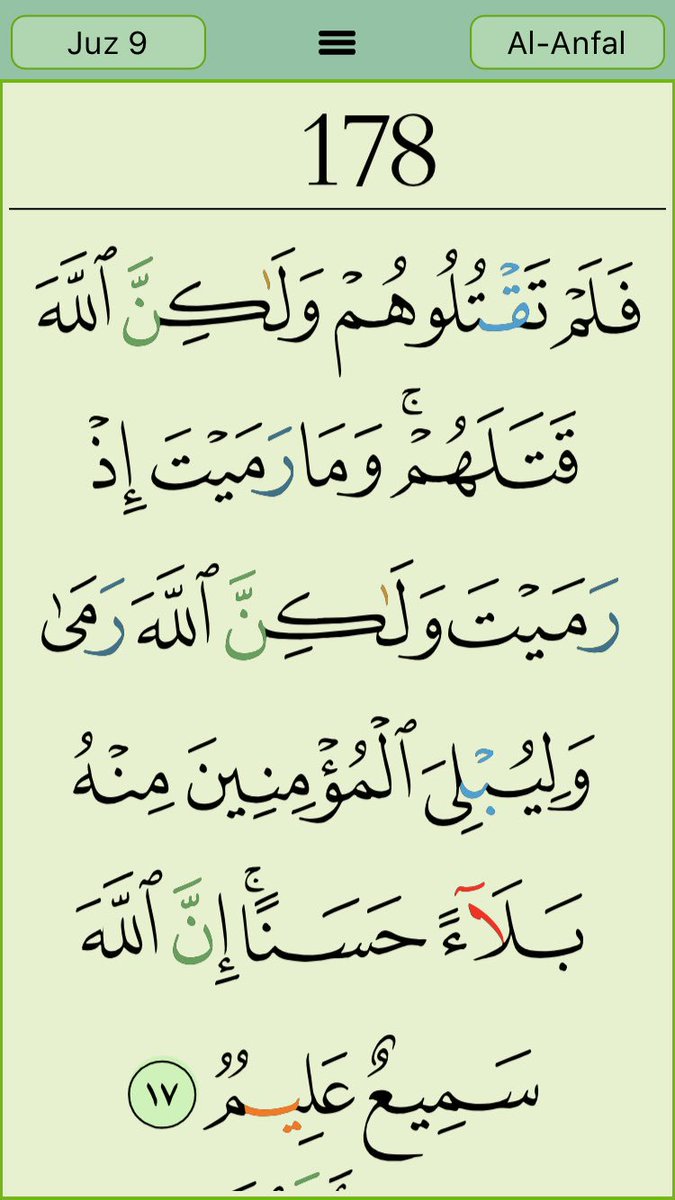 Juz 9 Al-Anfal
178
فَلَمْ تَقْتُلُوهُمْ وَلَٰكِنَّ ٱللَّهَ
قَتَلَهُمْ ۚ وَمَا رَمَيْتَ إِذْ
رَمَيْتَ وَلَٰكِنَّ ٱللَّهَ رَمَىٰ
وَلِيُبْلِىَ ٱلْمُؤْمِنِينَ مِنْهُ
بَلَآءً حَسَنًا ۚ إِنَّ ٱللَّهَ
سَمِيعٌ عَلِيمٌ ١٧